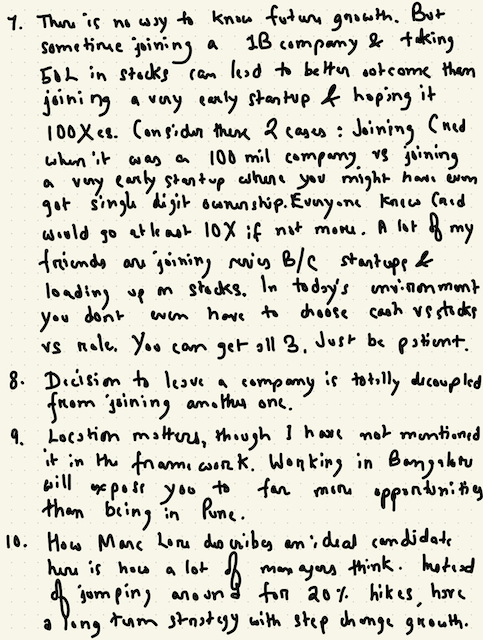 7. There is no way to know future growth. But
sometime joining a 1B company & taking
50L in stocks can lead to better outcome than
joining a very early startup & hoping it
100Xes. Consider these 2 cases : Joining Cred
when it was a 100 mil company vs joining
a very early startup where you might have even
got single digit ownership. Everyone knew Cred
would go atleast 10X if not more. A lot of my
friends are joining series B/C startups &
loading up on stocks. In today's environment
you dont even have to choose cash vs stocks
vs role. You can get all 3. Just be patient.
8. Decision to leave a company is totally decoupled
from joining another one.
9. Location matters, though I have not mentioned
it in the framework. Working in Bangalore
will expose you to far more opportunities
than being in Pune.
10. How Marc Lore describes an ideal candidate
here is how a lot of managers think. Instead
of jumping around for 20% hikes, have
a long term strategy with step change growth.